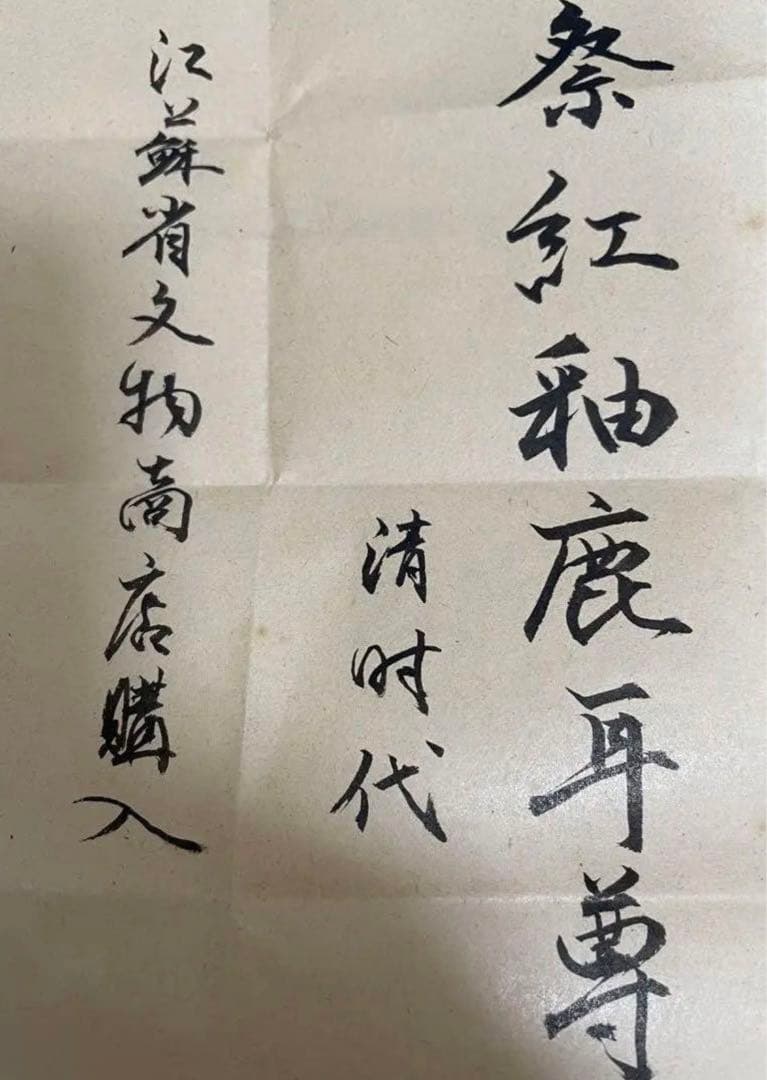 祭紅釉鹿耳尊
清时代
江蘇省文物商店購入